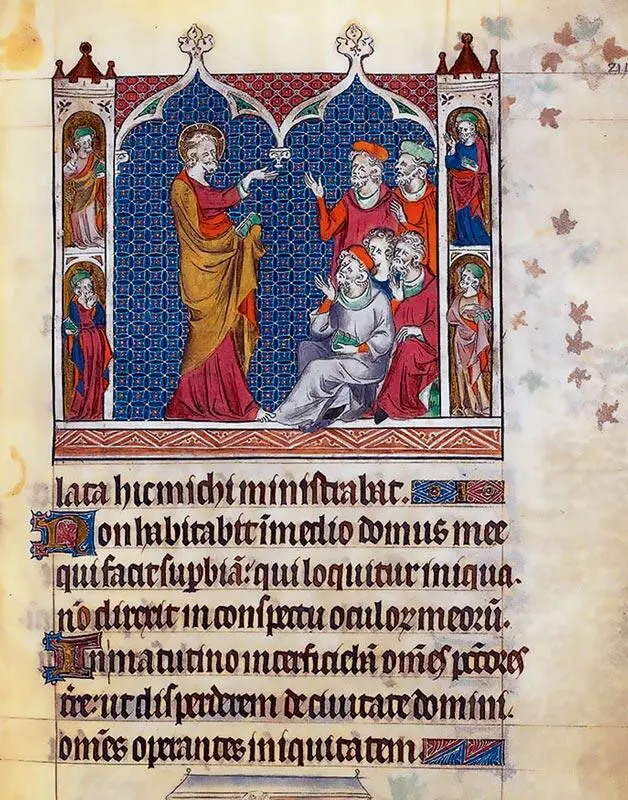 211
lata hic michi ministrabat.
Non habitabit ī medio domus mee
qui facit supbiā: qui loquitur iniqua.
nō direxit in conspectu oculoꝝ meorū.
In matutino interficiebā om̄es pctōres
t̄re: ut disperderem de ciuitate domini.
om̄es operantes iniquitatem